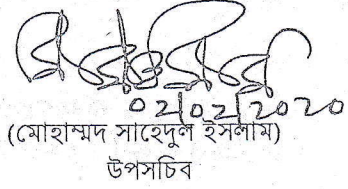 ০২/০২/২০২০
(মোহাম্মদ সাহেদুল ইসলাম)
উপসচিব